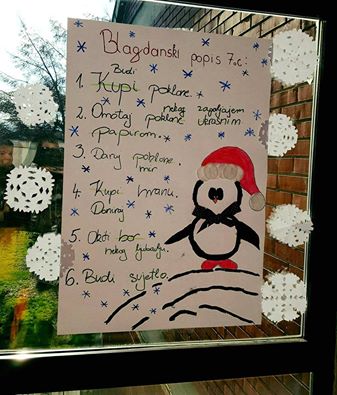 Blagdanski popis 7.c:
Budi
1. Kupi poklone.
nekog zagrljajem
2. Omotaj poklone ukrasnim
papirom.
3. Daruj poklone.
mir
4. Kupi hranu.
Doniraj
5. Okiti bor
nekog ljubavlju.
6. Budi svjetlo.